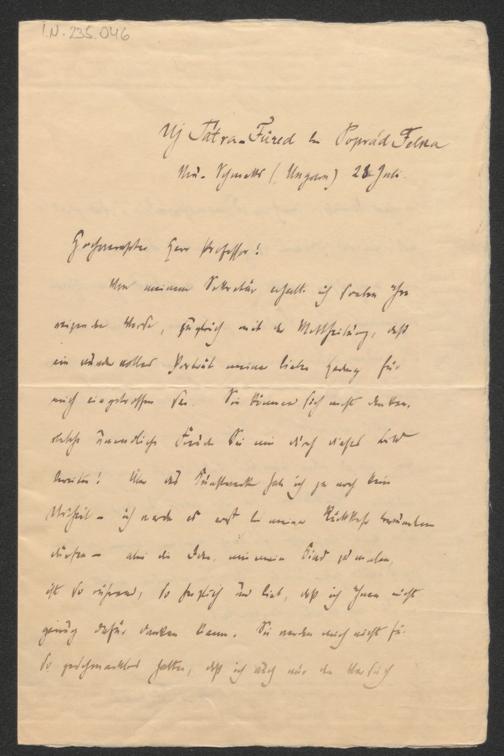 I.N. 235.046
Uj Tátra-Füred bei Poprád Felka
Neu-Schmecks (Ungarn) 28 Juli.
Hochverehrter Herr Professor!
Von meinem Sekretär erhalte ich soeben Ihre
Werke, zugleich mit der Mittheilung, daß
ein wundervolles Porträt meiner lieben Hedwig für
mich eingetroffen sei. Sie können sich nicht denken,
welche unendliche Freude Sie mir durch dieses Bild
bereiten! Über das Kunstwerk habe ich ja noch kein
Urtheil – ich werde es erst bei meiner Rückkehr bewundern
dürfen – aber die Idee, mir mein Kind zu malen,
ist so rührend, so herzlich und lieb, daß ich Ihnen nicht
genug dafür danken kann. Sie werden mich nicht für
so geschmacklos halten, daß ich auch nur den Versuch